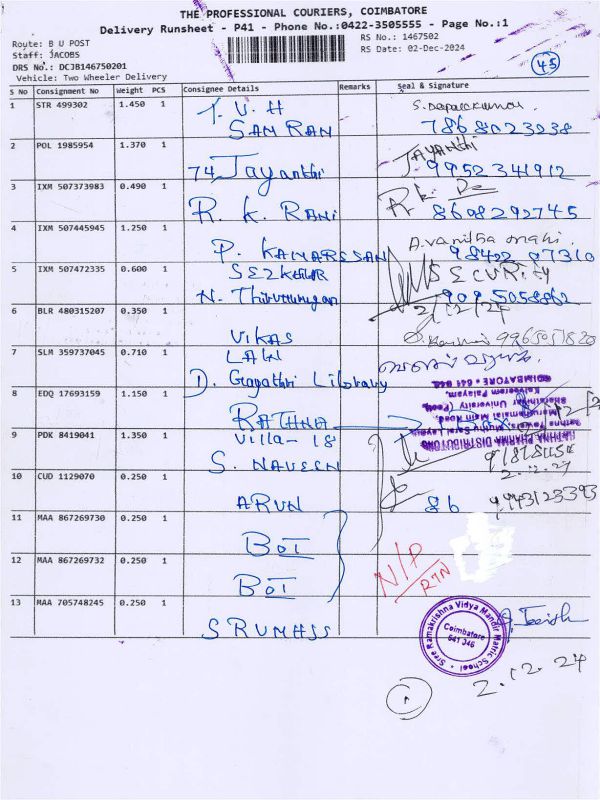 THE PROFESSIONAL COURIERS, COIMBATORE
Delivery Runsheet - P41 - Phone No.:0422-3505555 - Page No.:1
Route: B U POST
RS No.: 1467502
Staff: JACOBS
RS Date: 02-Dec-2024
DRS No.: DCJB146750201
45
Vehicle: Two Wheeler Delivery
S No Consignment No Weight PCS Consignee Details Remarks Seal & Signature
1 STR 499302 1.450 1 T. V. H
SAM RAN 7868023238
2 POL 1985954 1.370 1 JAYANTHI
74 Jayanthi 9952341912
3 IXM 507373983 0.490 1 R. k.
R. K. RANI 8608292745
4 IXM 507445945 1.250 1
P. KAMARSSAN 98422 07310
5 IXM 507472335 0.600 1 SECURITY
N.
2/12/24
6 BLR 480315207 0.350 1
VIKAS
7 SLM 359737045 0.710 1 LAW
D. Gayathri Library
8 EDQ 17693159 1.150 1
RATHNA
RATHNA PHARMA DISTRIBUTORS
Marudhamalai Main Road,
Bharathiar University (Post),
Kalveeram Palayam,
COIMBATORE - 641 046.
9 PDK 8419041 1.350 1 Villa-18
S. NAVEEN 2.12.24
10 CUD 1129070 0.250 1
ARUN 86 9443123393
11 MAA 867269730 0.250 1
BOI
N/P
RTN
12 MAA 867269732 0.250 1
BOI
13 MAA 705748245 0.250 1
Sree Ramakrishna Vidya Mandir Matric School
Coimbatore
641 046
2.12.24